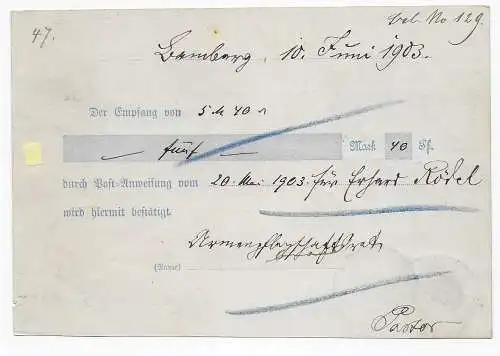 47.
Beb. No 129.
Bamberg, 10. Juni 1903.
Der Empfang von 5 M 40 ₰
— fünf — Mark 40 Pf.
durch Post-Anweisung vom 20. Mai 1903 für Erhard Rödel
wird hiermit bestätigt.
Armenpflegschaftsrat
(Name)
Pastor